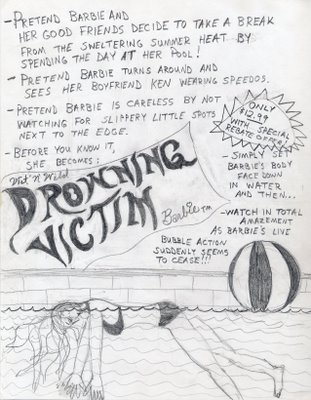 - PRETEND BARBIE AND
HER GOOD FRIENDS DECIDE TO TAKE A BREAK
FROM THE SWELTERING SUMMER HEAT BY
SPENDING THE DAY AT HER POOL!
- PRETEND BARBIE TURNS AROUND AND
SEES HER BOYFRIEND KEN WEARING SPEEDOS.
- PRETEND BARBIE IS CARELESS BY NOT
WATCHING FOR SLIPPERY LITTLE SPOTS
NEXT TO THE EDGE.
- BEFORE YOU KNOW IT,
SHE BECOMES:
Wet 'N' Wild
DROWNING
VICTIM
Barbie TM
ONLY
$12.99
WITH SPECIAL
REBATE OFFER!
- SIMPLY SET
BARBIE'S BODY
FACE DOWN
IN WATER
AND THEN...
- WATCH IN TOTAL
AMAZEMENT
AS BARBIE'S LIVE
BUBBLE ACTION
SUDDENLY SEEMS
TO CEASE!!!